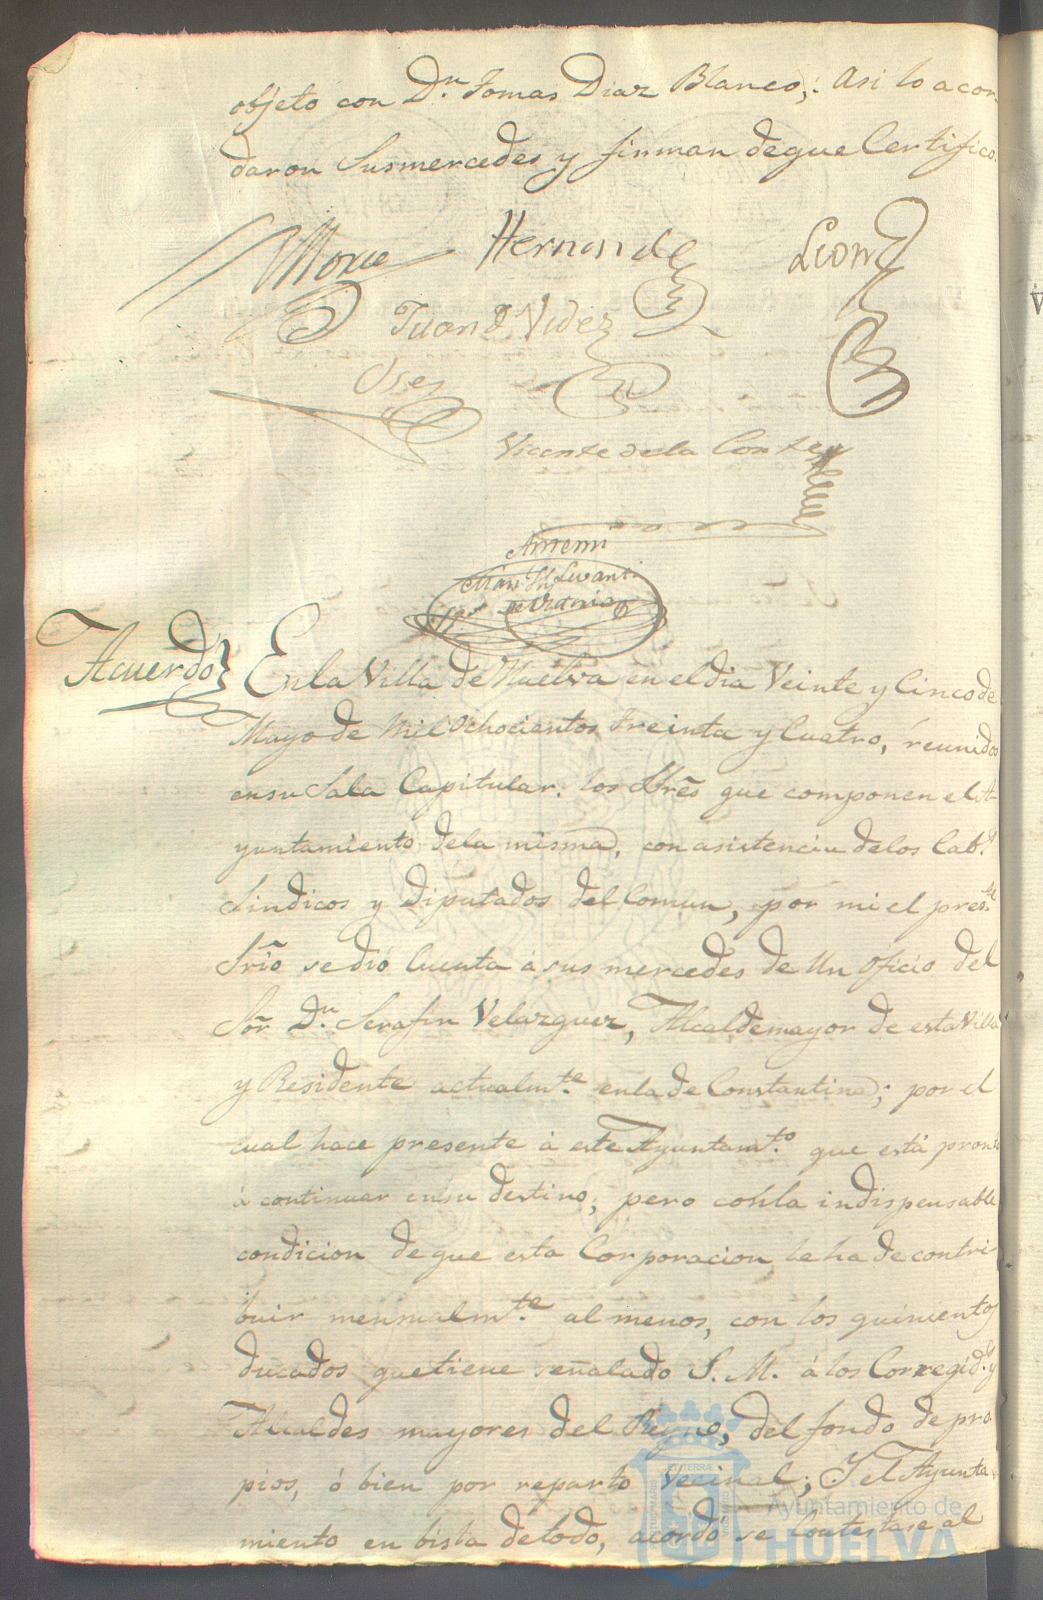 objeto con Dn. Tomas Diaz Blanco; Asi lo acor
daron Susmercedes y firman deque Certifico.
Hernandez
Leon
Juan D. Videz
Vicente de la Corte
Antemi
Acuerdo
En la Villa de Huelva en el dia Veinte y Cinco de
Mayo de Mil Ochocientos Treinta y Cuatro, reunidos
ensu Sala Capitular. los Sres que componen el A-
yuntamiento dela misma, con asistencia delos Cabs.
Sindicos y Diputados del Comun, por mi el preste.
Srio se dió Cuenta á sus mercedes de Un Oficio del
Sor Dn. Serafin Velazquez, Alcaldemayor de esta Villa
y Residente actualmte. enla de Constantina; por el
cual hace presente á este Ayuntamto. que está pronto
á continuar ensu destino; pero conla indispensable
condicion deque esta Corporacion le ha de contri-
buir mensualmte. al menos, con los quinientos
ducados quetiene señalado S. M. á los Corregids. y
Alcaldes mayores del Reyno, del fondo de pro-
pios, ó bien por reparto Vecinal; Y el Ayunta-
miento en bista detodo, acordó se Contestase al
Ayuntamiento de
HUELVA